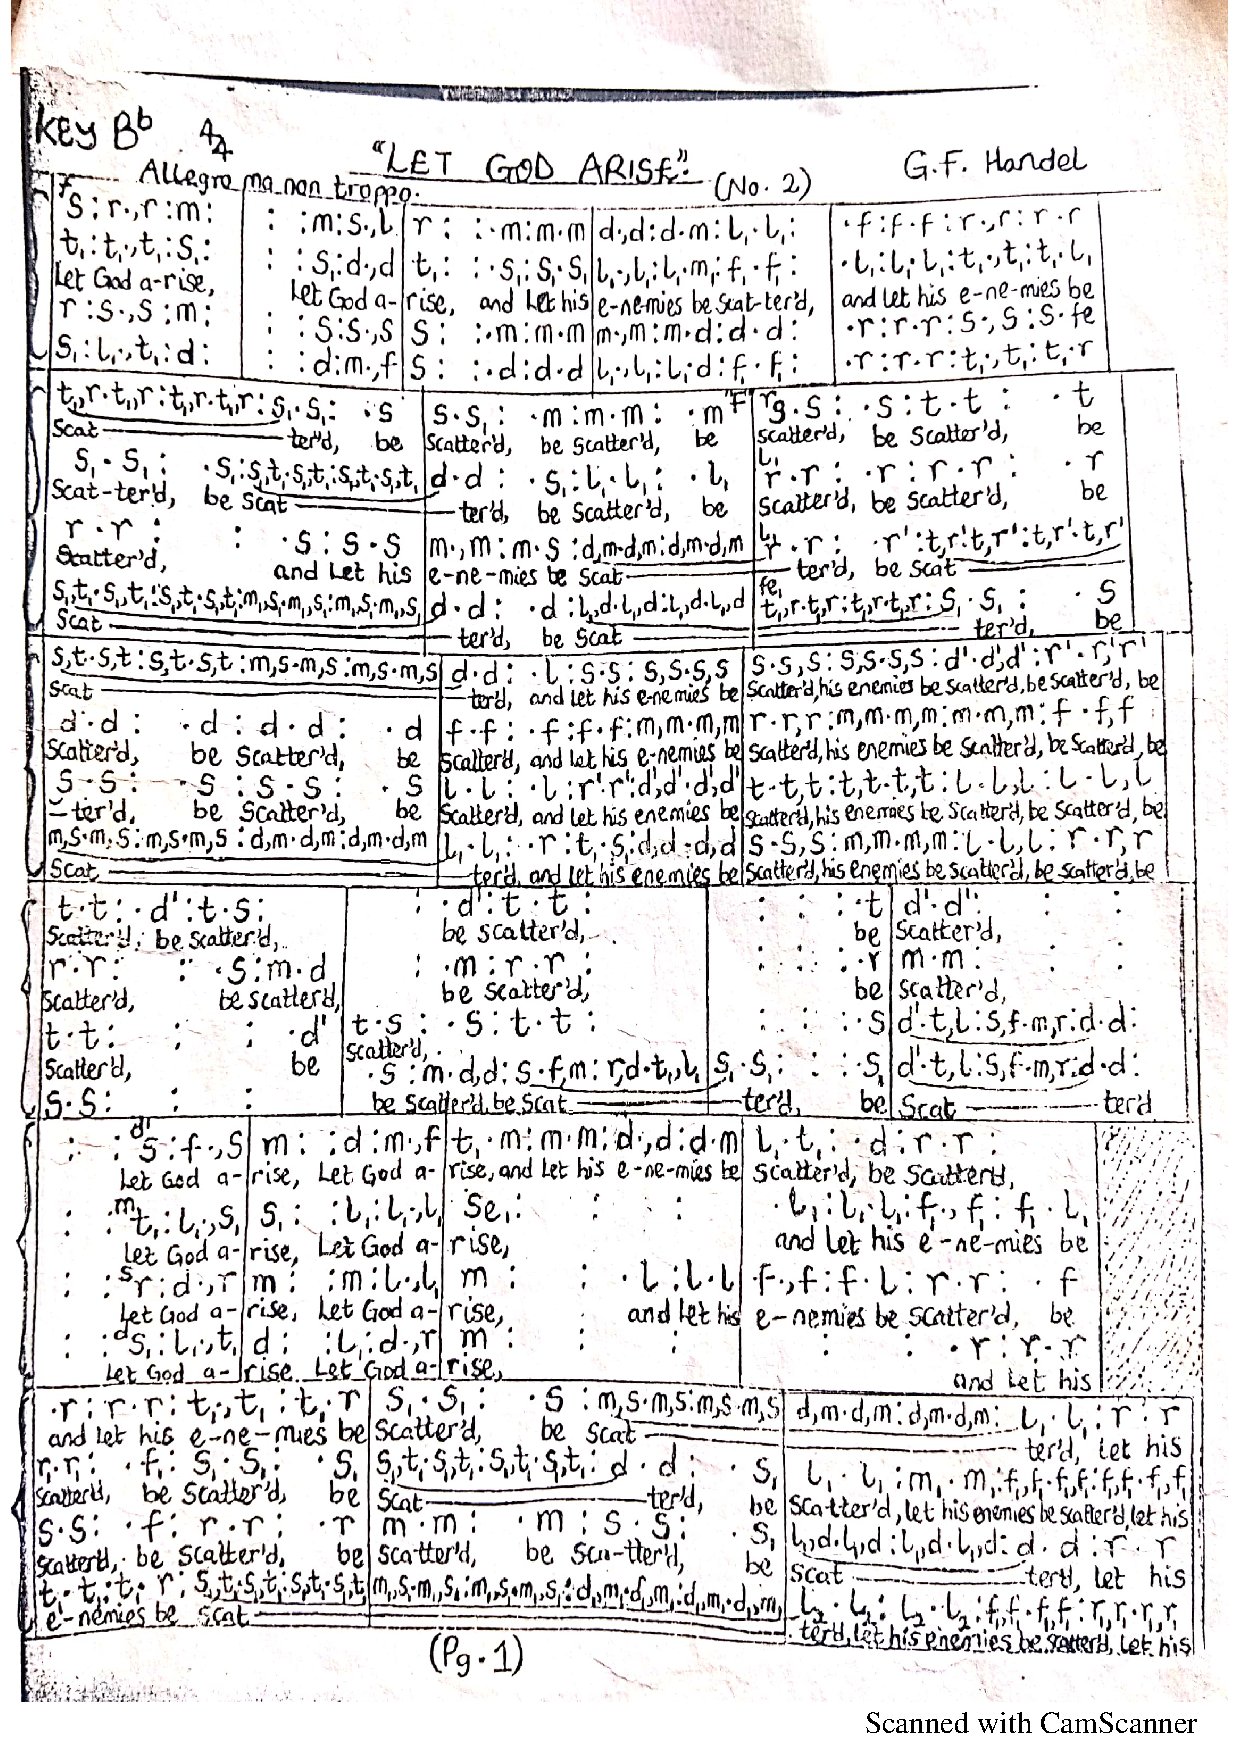 KEY Bb 4/4
"LET GOD ARISE" (No. 2) G.F. Handel
Allegro ma non troppo.
s : r ., r : m : | : : m : s ., l | r : : . m : m . m | d ., d : d . m : l₁ . l₁ : | . f : f . f : r ., r : r . r
t₁ : t₁ ., t₁ : s₁ : | : : s₁ : d ., d | t₁ : : . s₁ : s₁ . s₁ | l₁ ., l₁ : l₁ . m₁ : f₁ . f₁ : | . l₁ : l₁ . l₁ : t₁ ., t₁ : t₁ . l₁
Let God a-rise, Let God a-rise, and Let his e-nemies be Scat-ter'd, and let his e-ne-mies be
r : s ., s : m : | : : s : s ., s | s : : . m : m . m | m ., m : m . d : d . d : | . r : r . r : s ., s : s . fe
s₁ : l₁ ., t₁ : d : | : : d : m ., f | s : : . d : d . d | l₁ ., l₁ : l₁ . d : f₁ . f₁ : | . r : r . r : t₁ ., t₁ : t₁ . r
t₁,r . t₁,r : t₁,r . t₁,r : s₁ . s₁ : . s | s . s₁ : . m : m . m : . m | s . s : . s : t . t : . t
Scat ter'd, be Scatter'd, be Scatter'd, be scatter'd, be Scatter'd, be
s₁ . s₁ : . s₁ : s₁,t₁ . s₁,t₁ : s₁,t₁ . s₁,t₁ | d . d : . s₁ : l₁ . l₁ : . l₁ | r . r : . r : r . r : . r
Scat-ter'd, be Scat ter'd, be Scatter'd, be Scatter'd, be Scatter'd, be
r . r : : . s : s . s | m ., m : m . s : d,m . d,m : d,m . d,m | r . r : . r' : t,r' . t,r' : t,r' . t,r'
Scatter'd, and Let his e-ne-mies be Scat ter'd, be Scat
s₁,t₁ . s₁,t₁ : s₁,t₁ . s₁,t₁ : m₁,s₁ . m₁,s₁ : m₁,s₁ . m₁,s₁ | d . d : . d : l₁,d . l₁,d : l₁,d . l₁,d | t₁,r . t₁,r : t₁,r . t₁,r : s₁ . s₁ : . s
Scat ter'd, be Scat ter'd, be
s,t . s,t : s,t . s,t : m,s . m,s : m,s . m,s | d . d : . l : s . s : s,s . s,s | s . s,s : s,s . s,s : d' . d',d' : r' . r',r'
Scat ter'd, and let his e-nemies be Scatter'd, his enemies be Scatter'd, be scatter'd, be
d . d : . d : d . d : . d | f . f : . f : f . f : m,m . m,m | r . r,r : m,m . m,m : m . m,m : f . f,f
Scatter'd, be Scatter'd, be Scatter'd, and let his e-nemies be Scatter'd, his enemies be Scatter'd, be Scatter'd, be
s . s : . s : s . s : . s | l . l : . l : r' . r' : d',d' . d',d' | t . t,t : t,t . t,t : l . l,l : l . l,l
-ter'd, be Scatter'd, be Scatter'd, and let his enemies be Scatter'd, his enemies be Scatter'd, be Scatter'd, be
m,s . m,s : m,s . m,s : d,m . d,m : d,m . d,m | l₁ . l₁ : . r : t₁ . s₁ : d,d . d,d | s . s,s : m,m . m,m : l . l,l : r . r,r
Scat ter'd, and let his enemies be Scatter'd, his enemies be Scatter'd, be scatter'd, be
t . t : . d' : t . s : | : . d' : t . t : | : : : . t | d' . d' : : :
Scatter'd, be scatter'd, be scatter'd, be Scatter'd,
r . r : : . s : m . d | : . m : r . r : | : : : . r | m . m : : :
Scatter'd, be scatter'd, be scatter'd, be Scatter'd,
t . t : : : . d' | t . s : . s : t . t : | : : : . s | d' . t,l : s,f . m,r : d . d :
Scatter'd, be Scatter'd,
s . s : : : | . s : m . d,d : s . f,m : r,d . t₁,l₁ | s₁ . s₁ : : : . s₁ | d' . t,l : s,f . m,r : d . d :
be Scatter'd, be Scat ter'd, be Scat ter'd
: : d's : f ., s | m : : d : m ., f | t₁ . m : m . m : d ., d : d . m | l₁ . t₁ : . d : r . r :
Let God a-rise, Let God a-rise, and let his e-ne-mies be Scatter'd, be Scatterd,
: : mt₁ : l₁ ., s₁ | s₁ : : l₁ : l₁ ., l₁ | se₁ : : : | . l₁ : l₁ . l₁ : f₁ ., f₁ : f₁ . l₁
Let God a-rise, Let God a-rise, and let his e-ne-mies be
: : sr : d ., r | m : : m : l₁ ., l₁ | m : : . l : l . l | f ., f : f . l : r . r : . f
Let God a-rise, Let God a-rise, and let his e-nemies be scatter'd, be
: : ds₁ : l₁ ., t₁ | d : : l₁ : d ., r | m : : : | : : . r : r . r
Let God a-rise Let God a-rise, and Let his
. r : r . r : t₁ ., t₁ : t₁ . r | s₁ . s₁ : . s : m,s . m,s : m,s . m,s | d,m . d,m : d,m . d,m : l₁ . l₁ : r . r
and let his e-ne-mies be Scatter'd, be scat ter'd, Let his
r . r : . f₁ : s₁ . s₁ : . s₁ | s₁,t₁ . s₁,t₁ : s₁,t₁ . s₁,t₁ : d . d : . s₁ | l₁ . l₁ : m₁ . m₁ : f₁,f₁ . f₁,f₁ : f₁,f₁ . f₁,f₁
Scatterd, be Scatter'd, be Scat ter'd, be Scatter'd, let his enemies be scatter'd, let his
s . s : . f : r . r : . r | m . m : . m : s . s : . s₁ | l₁,d . l₁,d : l₁,d . l₁,d : d . d : r . r
Scatterd, be Scatter'd, be Scatter'd, be Sca-tter'd, be Scat terd, Let his
t₁ . t₁ : t₁ . r : s₁,t₁ . s₁,t₁ : s₁,t₁ . s₁,t₁ | m₁,s₁ . m₁,s₁ : m₁,s₁ . m₁,s₁ : d₁,m₁ . d₁,m₁ : d₁,m₁ . d₁,m₁ | l₂ . l₂ : l₂ . l₂ : f₁,f₁ . f₁,f₁ : r₁,r₁ . r₁,r₁
e-nemies be scat terd, let his enemies be scatterd, Let his
(Pg. 1)
Scanned with CamScanner